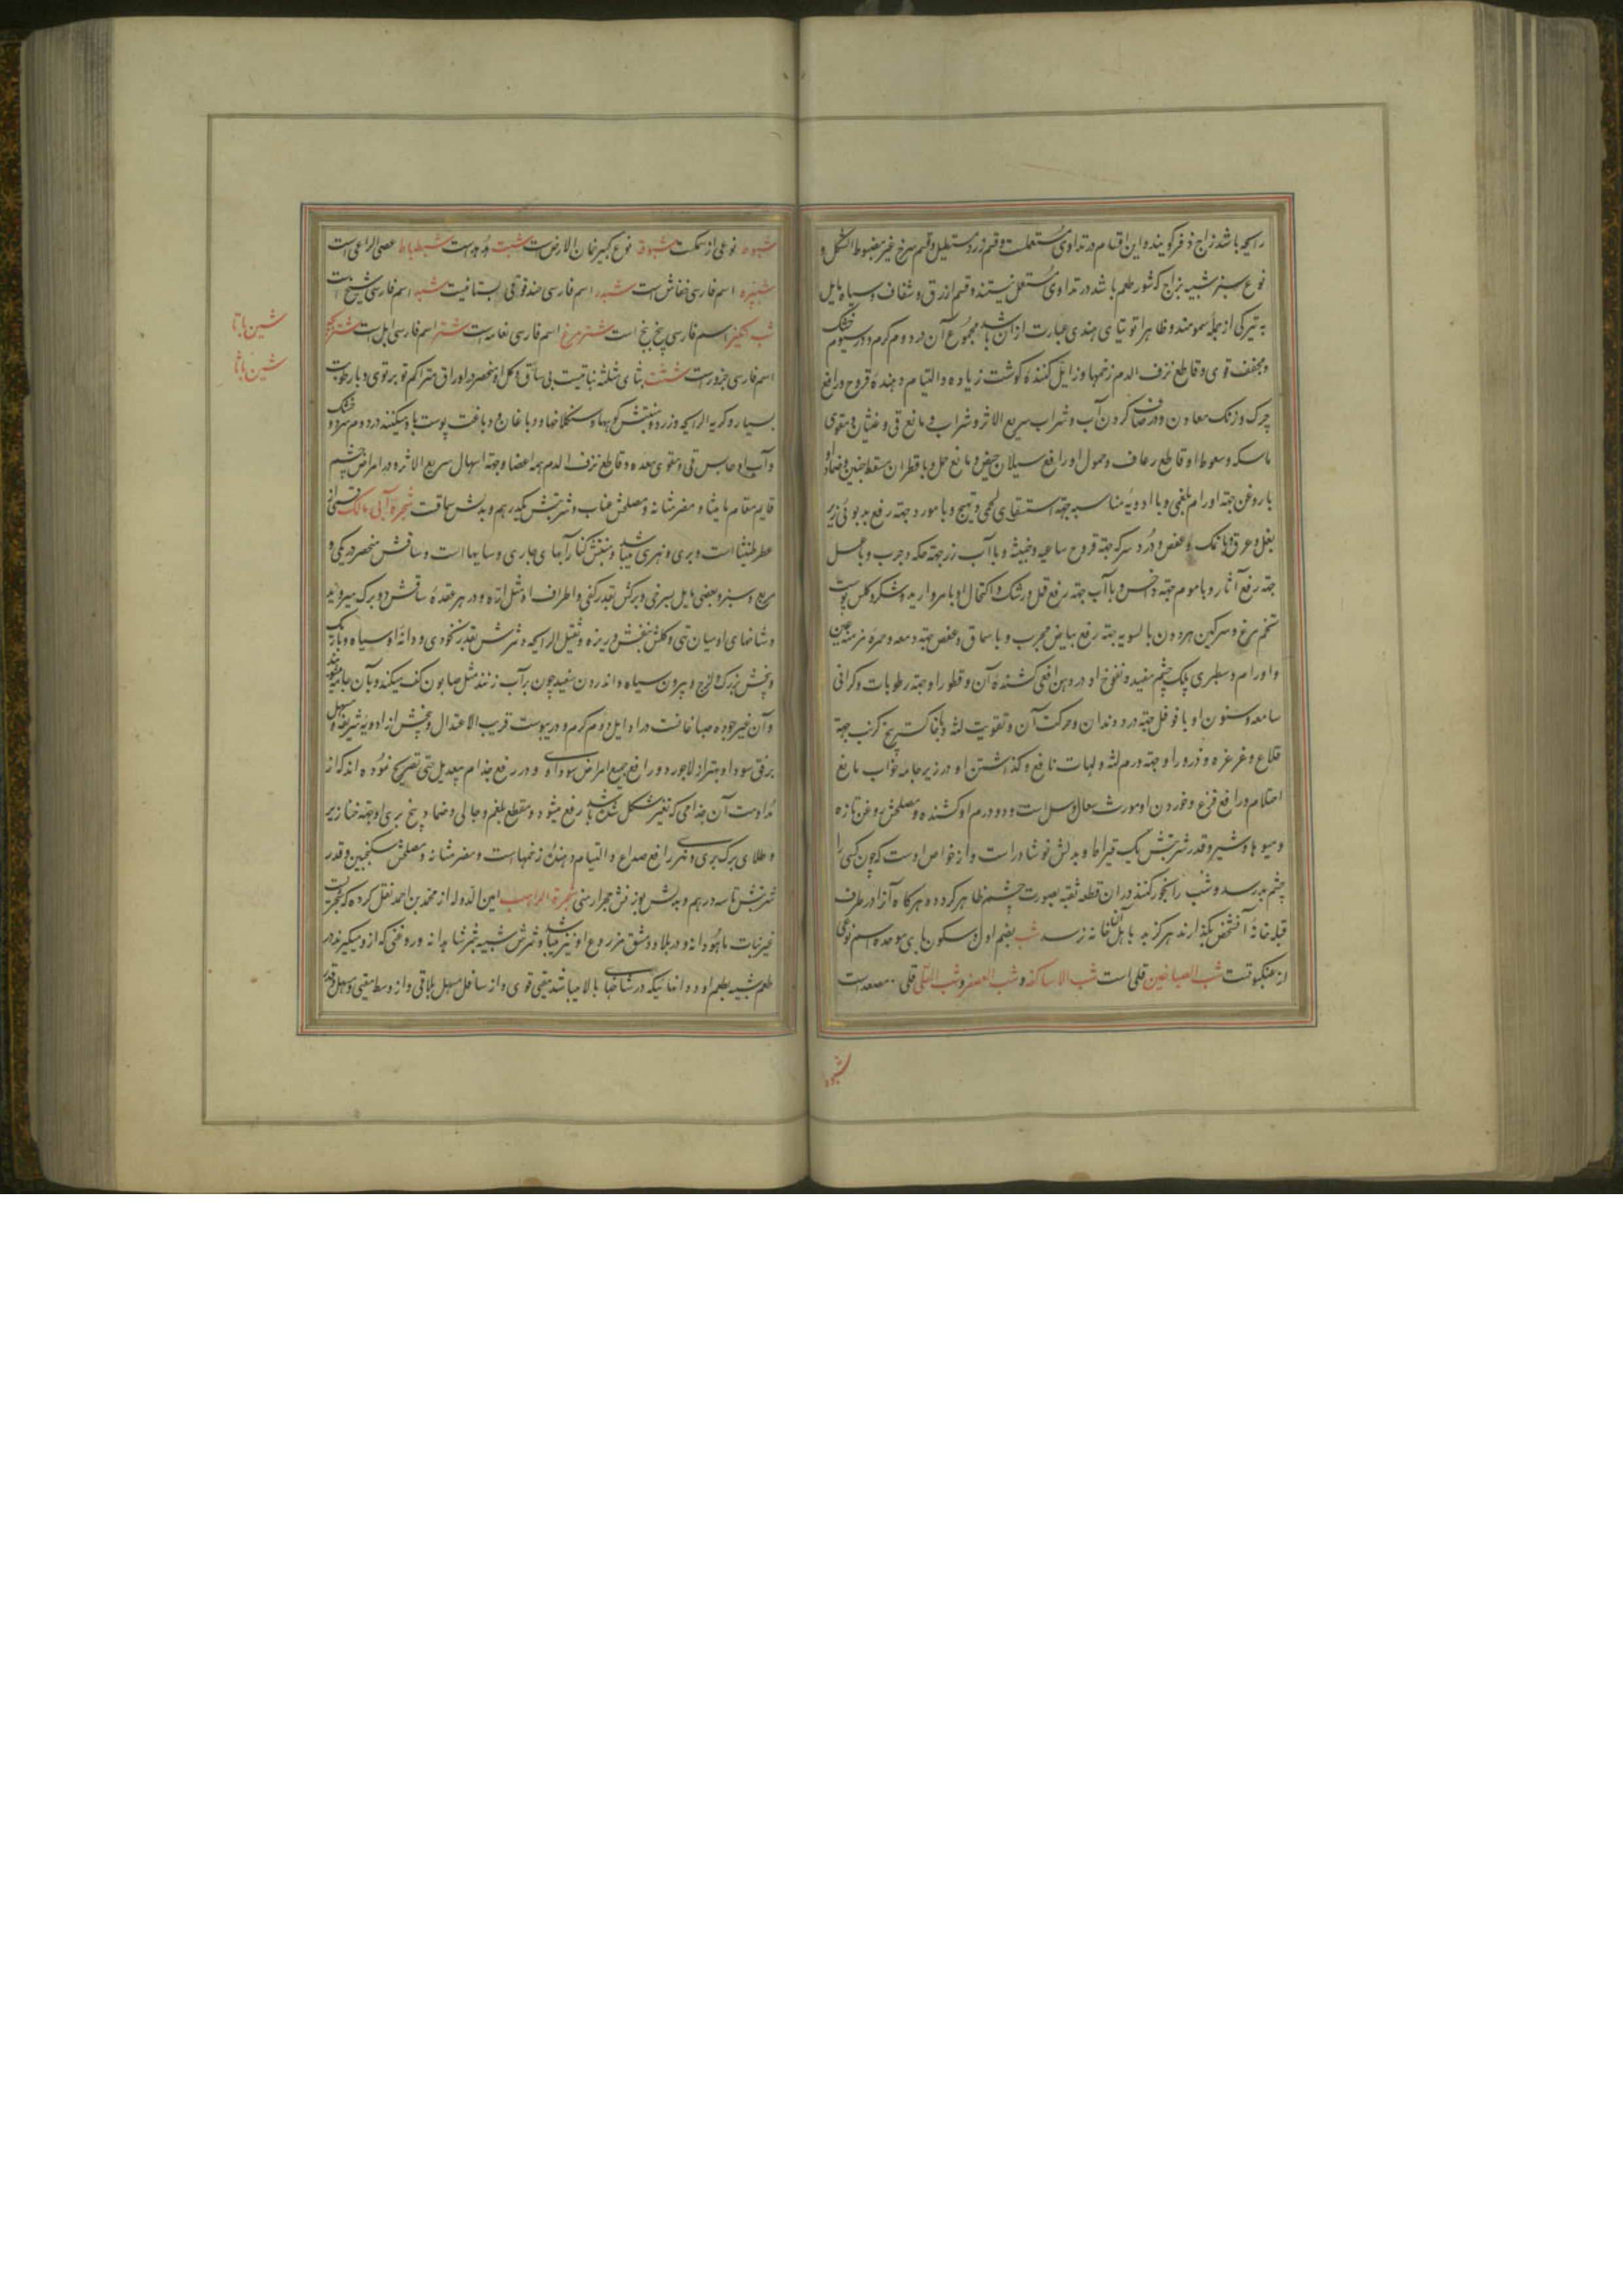 رایحه باشد زاج ذفر گویند و این اقسام در تداوی مستعملست و قسم زرد مستطیل و قسم سرخ غیر مضبوط الشکل و
نوع سبز شبیه بزاج که شور طعم باشد در تداوی مستعمل نیستند و قسم ازرق و شفاف و سیاه مایل
به تیرگی از جمله سمومند و ظاهرا توتیای هندی عبارت از آن باشد مجموع آن در دوم گرم و در سیوم خشک
و مجفف قوی و قاطع نزف الدم زخمها و زایل کننده گوشت زیاده و التیام دهنده قروح و رافع
چرک و زنک معادن و در صاف کردن آب و شراب سریع الاثر و شراب و مانع قی و غثیان و مقوی
ماسکه و سعوط او قاطع رعاف و حمول او رافع سیلان حیض و مانع حمل و با قطران مسقط جنین و ضماد او
با روغن جهة اورام بلغمی و با ادویهٔ مناسبه جهة استسقای لحمی و تهیج و با مورد جهة رفع بدبوئی زیر
بغل و عرق و با نمک و عفص و درد سرکه جهة قروح ساعیه و خبیثه و با آب زر جهة حکه و جرب و با عسل
جهة رفع آثار و با موم جهة داخس و با آب جهة رفع قمل و رشک و اکتحال او با مروارید و شکر و کلس پوست
تخم مرغ و سرگین حردون بالسویه جهة رفع بیاض مجرب و با سماق و عفص جهة دمعه و حمره مزمنه عین
و اورام و سطبری پلک چشم مفید و نفوخ او در دهن افعی کشنده آن و قطور او جهة رطوبات و گرانی
سامعه و سنون او با فوفل جهة درد دندان و حرکت آن و تقویت لثه و با خاکستر بیخ کرنب جهة
قلاع و غرغره و ذرور او جهة ورم لثه و لهات نافع و گذاشتن او در زیر جامه خواب مانع
احتلام و رافع فزع و خوردن او مورث سعال و سل است و دو درم او کشنده و مصلحش روغن تازه
و میوها و شیر و قدر شربتش یک قیراط و بدلش نوشادر است و از خواص اوست که چون کسی را
چشم بد رسد و شب را بخور کنند در آن قطعه ثقبه بصورت چشم ظاهر گردد و هرگاه آنرا در طرف
قبله خانهٔ آنشخص بگذارند هرگز بد باهل آن خانه نرسد شب بضم اول و سکون بای موحده اسم نوعی
از عنکبوتست شب الصباغین قلی است شب الاساکفه و شب العصفر و شب القلی قلی مصعدست
شبوط
شبوط نوعی از سمکست شبوقه نوع کبیر خمان الارضست شبت است شبطباط عصی الراعی است
شب‌پره اسم فارسی خفاش است شبدر اسم فارسی حندقوقی بستانیست شبه اسم فارسی سبج است
شب انگیز اسم فارسی بیخ بنج است شترمرغ اسم فارسی نعامه است شتر اسم فارسی ابل است
شین با تا
اسم فارسی جزورست شث بثای مثلثه نباتیست بی ساق و گل و منحصر در اوراق متراکم تو بر توی و با رطوبت
شین با ثا
بسیار و کریه الرایحه و زرد و منبتش کوهها و سنگلاخها و دباغان دباغت پوست با او میکنند در دوم سرد و خشک
و آب او حابس قی و مقوی معده و قاطع نزف الدم همه اعضا و جهة اسهال سریع الاثر و در امراض چشم
قایم مقام مامیثا و مضر مثانه و مصلحش عناب و شربتش یکدرهم و بدلش سماقست شجرة ابی مالک قسمی از
عرطنیثا است و بری و نهری میباشد و منبتش کنار آبهای جاری و سایها است و ساقش منحصر در یکی و
مربع و سبز و بعضی مایل بسرخی و برگش بقدر کفی و اطراف او مثل اره و در هر عقدهٔ ساقش دو برگ میروید
و شاخهای او میان تهی و گلش بنفش و ریزه و ثقیل الرایحه و ثمرش بقدر نخودی و دانهٔ او سیاه و باریک
و بیخش بزرگ و لزج و بیرون سیاه و اندرون سفید چون بر آب زنند مثل صابون کف میکند و با آن جامه میشویند
و آن غیر جوده صباغانست در اوایل دوم گرم و در یبوست قریب الاعتدال و بیخش از ادویه شریفه و مسهل
برفق سودا و بهتر از لاجورد و رافع جمیع امراض سوداوی و در رفع جذام بیعدیل حتی تصریح نموده اند که از
مداومت آن جذامی که تغیر شکل شده باشد رفع میشود و مقطع بلغم و جالی و ضماد بیخ بری او جهة خنازیر
و طلای برگ بری و نهری رافع صداع و التیام دهندهٔ زخمهاست و مضر مثانه و مصلحش سکنجبین و قدر
شربتش تا سه درهم و بدلش بوزنش حجر ارمنی شجرة الراهب امین الدوله از محمد بن احمد نقل کرده که شجریست
غیر نبات ماهودانه و در بلاد دمشق مزروع او نیز میباشد و ثمرش شبیه بثمر شاهدانه و روغنی که ازو میگیرند در
طعم شبیه بطعم او و دانهائیکه در شاخهای بالا میباشد مقیی قوی و از سافل مسهل بلا قی و از وسط مقیی و مسهل و قدر